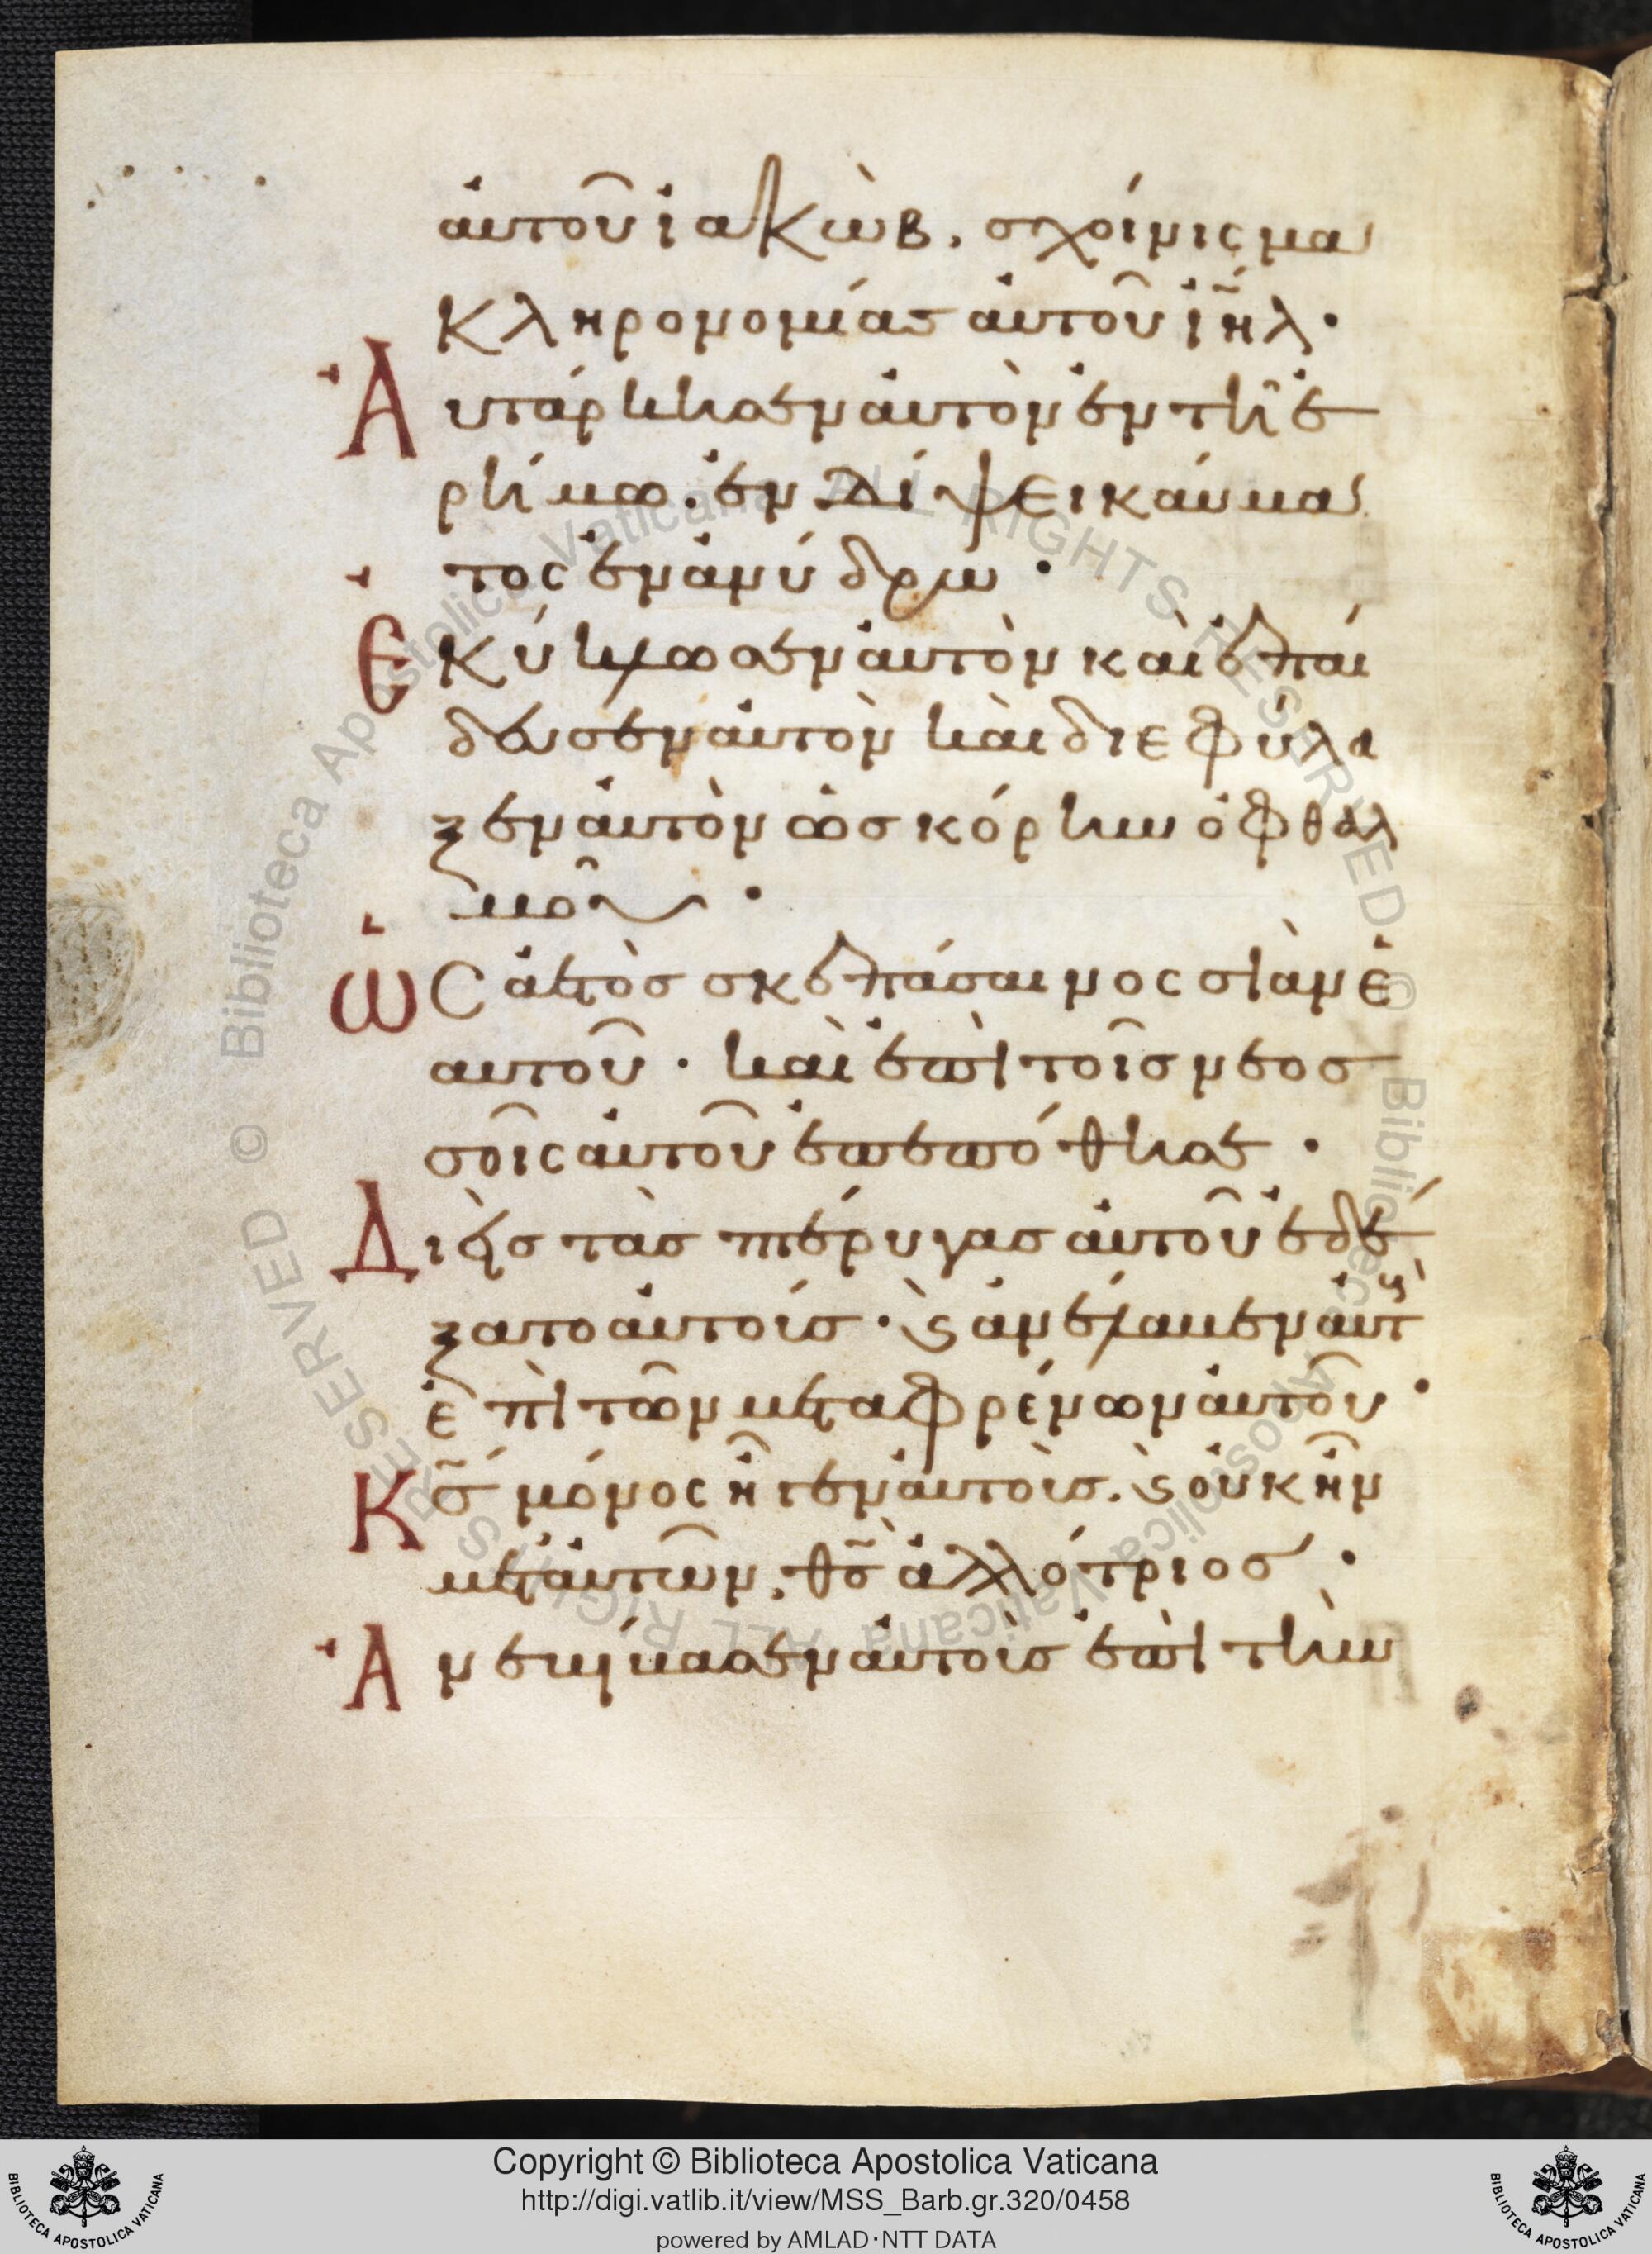 αὐτοῦ ἰακὼβ, σχοίνισμα
κληρονομίας αὐτοῦ ἰῆλ·
Ἀυτάρκησεν αὐτὸν ἐν τῆ ἐ
ρήμω· ἐν δίψει καύμα
τος ἐν ἀνύδρω·
Ἐκύκλωσεν αὐτὸν καὶ ἐπαί
δευσεν αὐτὸν καὶ διεφύλα
ξεν αὐτὸν ὡς κόρην ὀφθαλ
μοῦ·
Ὡς ἀετὸς σκεπάσαι νοσσιὰν ἑ
αυτοῦ· καὶ ἐπὶ τοῖς νεοσ
σοῖς αὐτοῦ ἐπεπόθησε·
Διεὶς τὰς πτέρυγας αὐτοῦ ἐδέ
ξατο αὐτοίς· ϛ̀ ἀνέλαβεν αὐτ
ἐπὶ τῶν μεταφρένων αὐτοῦ·
Κς̃ μόνος ἦγεν αὐτοὶς. ϛ̀ οὐκ ἦν
μετ' αὐτῶν, θς̃ ἀλλότριος·
Ἀνεβίβασεν αὐτοὶς ἐπὶ τὴν
Copyright © Biblioteca Apostolica Vaticana
http://digi.vatlib.it/view/MSS_Barb.gr.320/0458
powered by AMLAD·NTT DATA
BIBLIOTECA APOSTOLICA VATICANA
BIBLIOTECA APOSTOLICA VATICANA
© Biblioteca Apostolica Vaticana ALL RIGHTS RESERVED © Biblioteca Apostolica Vaticana ALL RIGHTS RESERVED